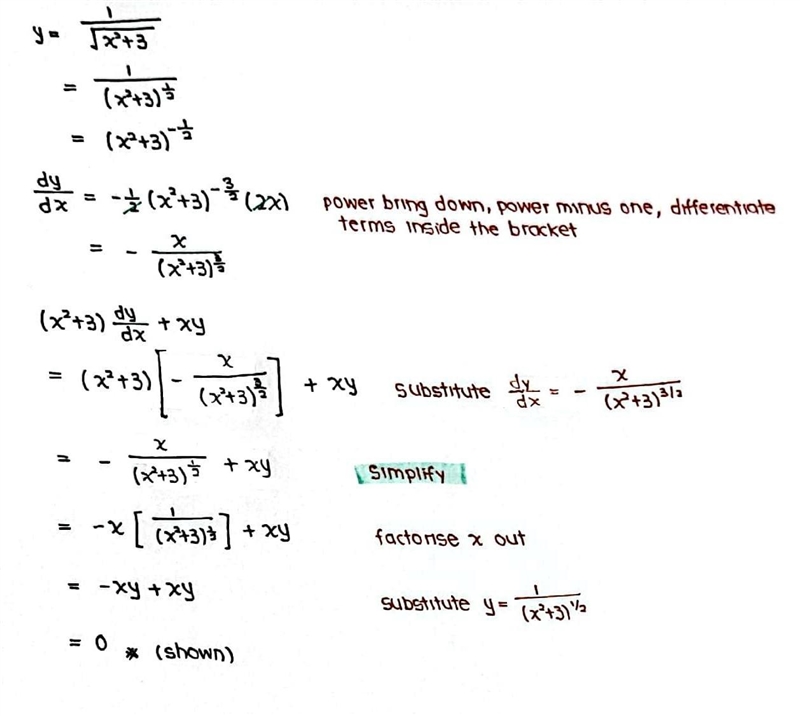 y = 1/√(x²+3)
= 1/(x²+3)^½
= (x²+3)^-½
dy/dx = -½(x²+3)^-3/2 (2x) power bring down, power minus one, differentiate
terms inside the bracket
= - x/(x²+3)^3/2
(x²+3) dy/dx + xy
= (x²+3) [ - x/(x²+3)^3/2 ] + xy substitute dy/dx = - x/(x²+3)^3/2
= - x/(x²+3)^½ + xy simplify
= -x [ 1/(x²+3)^½ ] + xy factorise x out
= -xy + xy substitute y = 1/(x²+3)^1/2
= 0 * (shown)